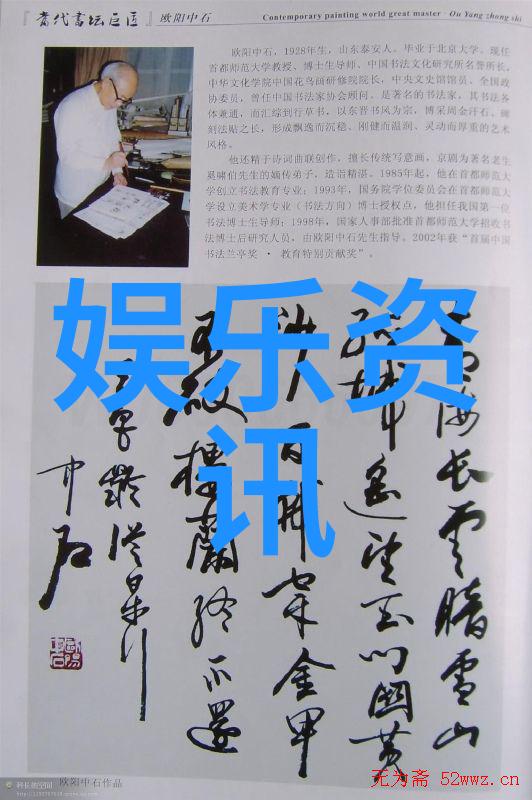 『当代书坛巨匠』欧阳中石
Contemporary painting world great master · Ou Yang zhong shi
欧阳中石，1928年生，山东泰安人。毕业于北京大学。现任
首都师范大学教授、博士生导师、中国书法文化研究所名誉所长，
中华文化学院中国花鸟画研修院院长，中央文史馆馆员、全国政
协委员，曾任中国书法家协会顾问。是著名的书法家，其书法各
体兼通，而汇综到行草书，以东晋书风为宗，博采周金汗石、碑
刻法贴之长，形成飘逸而沉稳、刚健而温润、灵动而厚重的艺术
风格。
他还精于诗词曲联创作，擅长传统写意画，京剧为著名老生
奚啸伯先生的嫡传弟子，造诣精湛。1985年起，他在首都师范大
学创立书法教育专业；1993年，国务院学位委员会在首都师范大
学设立美术学专业（书法方向）博士授权点，他担任我国第一位
书法博士生导师；1998年，国家人事部批准首都师范大学招收书
法博士后研究人员，由欧阳中石先生指导。2002年获“首届中国
书法兰亭奖 · 教育特别贡献奖”。
娱乐资
讯
青海長雲暗雪山
孤城遥望玉门關黄
沙百戰穿金甲
不破樓蘭終不還
王昌齡從軍行
中石
欧阳中石作品
无为斋 52wwz.cn